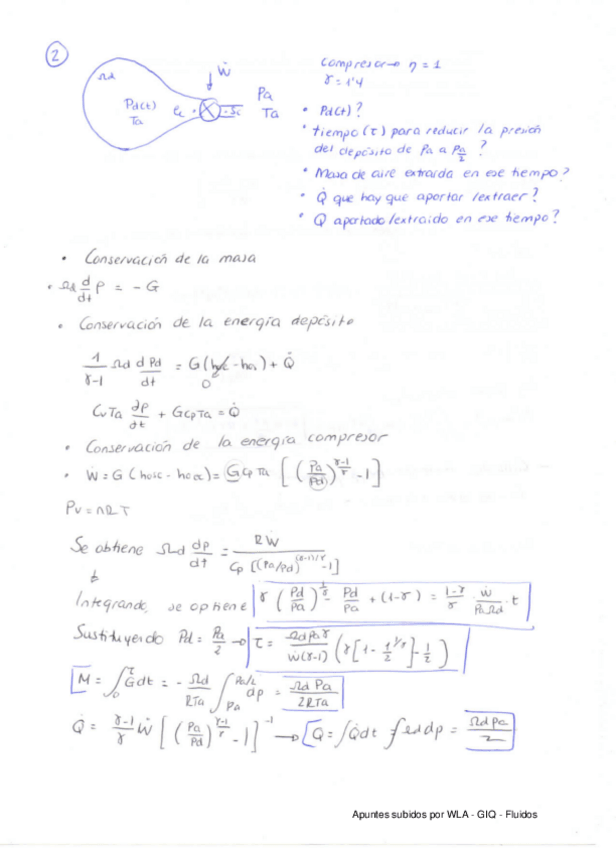 ②
Ωd
Pd(t)
Ta
ec
Ẇ
sc
Pa
Ta
Compresor → η = 1
γ = 1'4
• Pd(t)?
• tiempo (τ) para reducir la presión
del depósito de Pa a Pa/2 ?
• Masa de aire extraída en ese tiempo?
• Q̇ que hay que aportar/extraer?
• Q aportado/extraido en ese tiempo?
• Conservación de la masa
• Ωd d/dt ρ = - G
• Conservación de la energía depósito
1/(γ-1) Ωd dPd/dt = G( - hoa) + Q̇
0
CvTa ∂ρ/∂t + GCpTa = Q̇
• Conservación de la energía compresor
• Ẇ = G (hosc - hoec) = GCpTa [ (Pa/Pd)^((γ-1)/γ) - 1 ]
Pv = nRT
Se obtiene Ωd dp/dt = RẆ / Cp [(Pa/Pd)^((γ-1)/γ) - 1]
Integrando, se obtiene γ (Pd/Pa)^(1/γ) - Pd/Pa + (1-γ) = (1-γ)/γ · Ẇ/(PaΩd) · t
Sustituyendo Pd = Pa/2 → τ = ΩdPaγ / Ẇ(γ-1) (γ[1 - 1/2^(1/γ)] - 1/2)
M = ∫₀^τ Gdt = - Ωd/RTa ∫_Pa^(Pa/2) dp = ΩdPa / 2RTa
Q̇ = (γ-1)/γ Ẇ [ (Pa/Pd)^((γ-1)/γ) - 1 ]^-1 → Q = ∫Q̇dt ∫Ωd dp = ΩdPa / 2
Apuntes subidos por WLA - GIQ - Fluidos